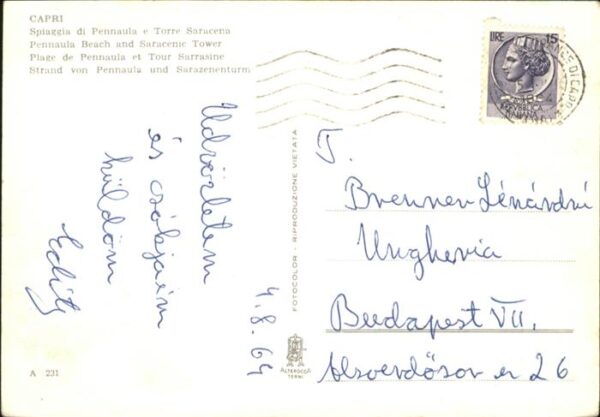 CAPRI
Spiaggia di Pennaula e Torre Saracena
Pennaula Beach and Saracenic Tower
Plage de Pennaula et Tour Sarrasine
Strand von Pennaula und Sarazenenturm
Üdvözletem
és csókjaim
küldöm
Edit
4.8.64
A 231
FOTOCOLOR - RIPRODUZIONE VIETATA
ALTEROCCA
TERNI
LIRE 15
T.
Brenner Lénárdné
Ungheria
Budapest VII.
Alsóerdősor u 26